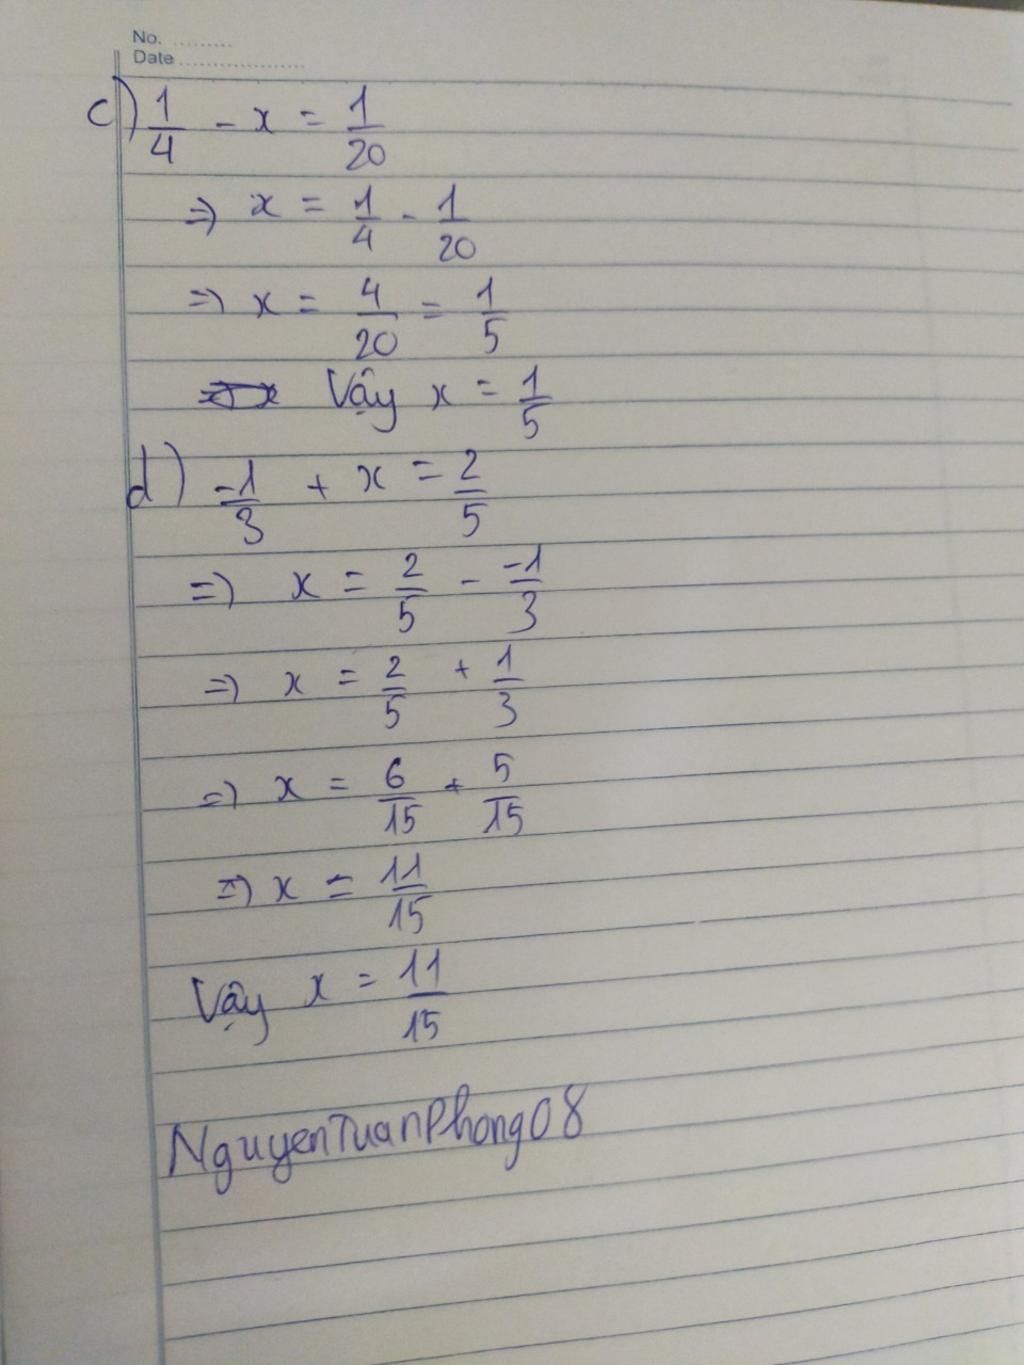 No. .........
Date ....................
c) 1/4 - x = 1/20
=> x = 1/4 - 1/20
=> x = 4/20 = 1/5
Vậy x = 1/5
d) -1/3 + x = 2/5
=> x = 2/5 - -1/3
=> x = 2/5 + 1/3
=> x = 6/15 + 5/15
=> x = 11/15
Vậy x = 11/15
NguyenTuanPhong08